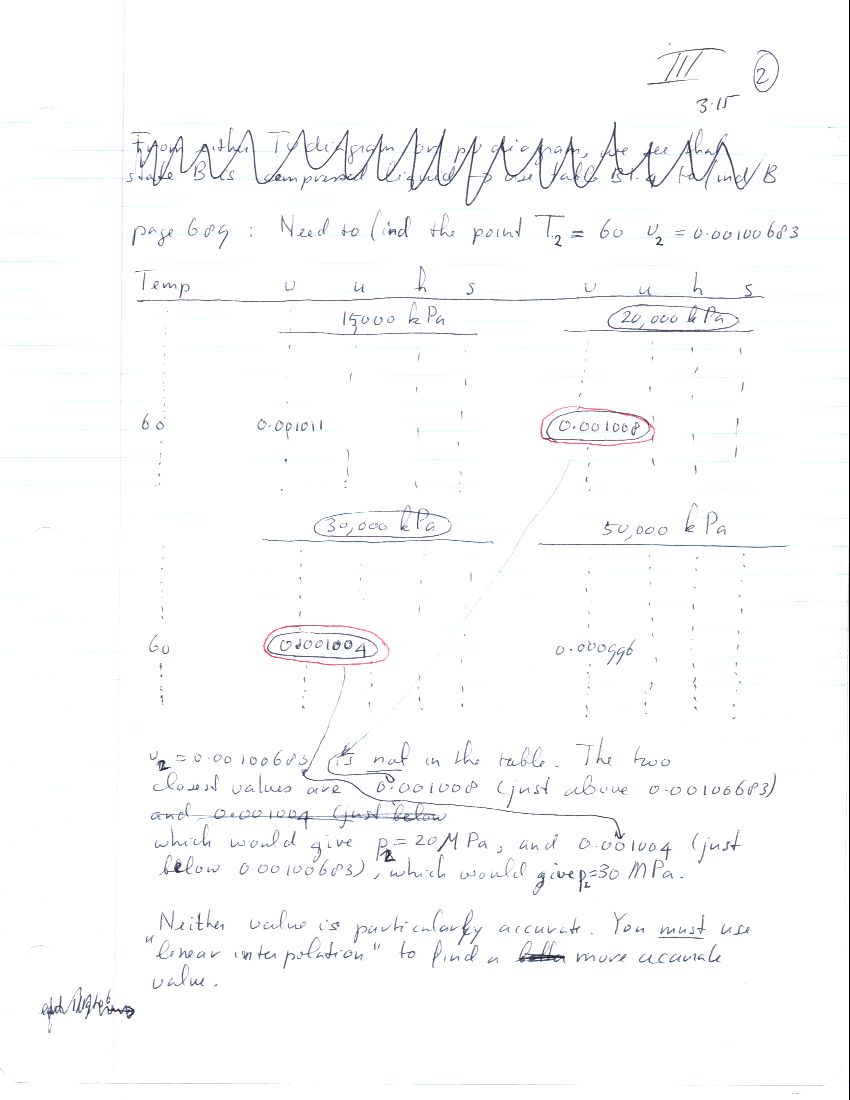 III 2
3.15
From either Tv diagram or pv diagram, we see that
state B is compressed liquid to use table B1.4 to find B
page 689 : Need to find the point T2 = 60 v2 = 0.00100683
Temp v u h s v u h s
15000 kPa 20,000 kPa
60 0.001011 0.001008
30,000 kPa 50,000 kPa
60 0.001004 0.000996
v2 = 0.00100683 is not in the table. The two
closest values are 0.001008 (just above 0.00100683)
and 0.001004 (just below
which would give p2 = 20 MPa, and 0.001004 (just
below 0.00100683), which would give p2=30 MPa.
Neither value is particularly accurate. You must use
"linear interpolation" to find a more accurate
value.